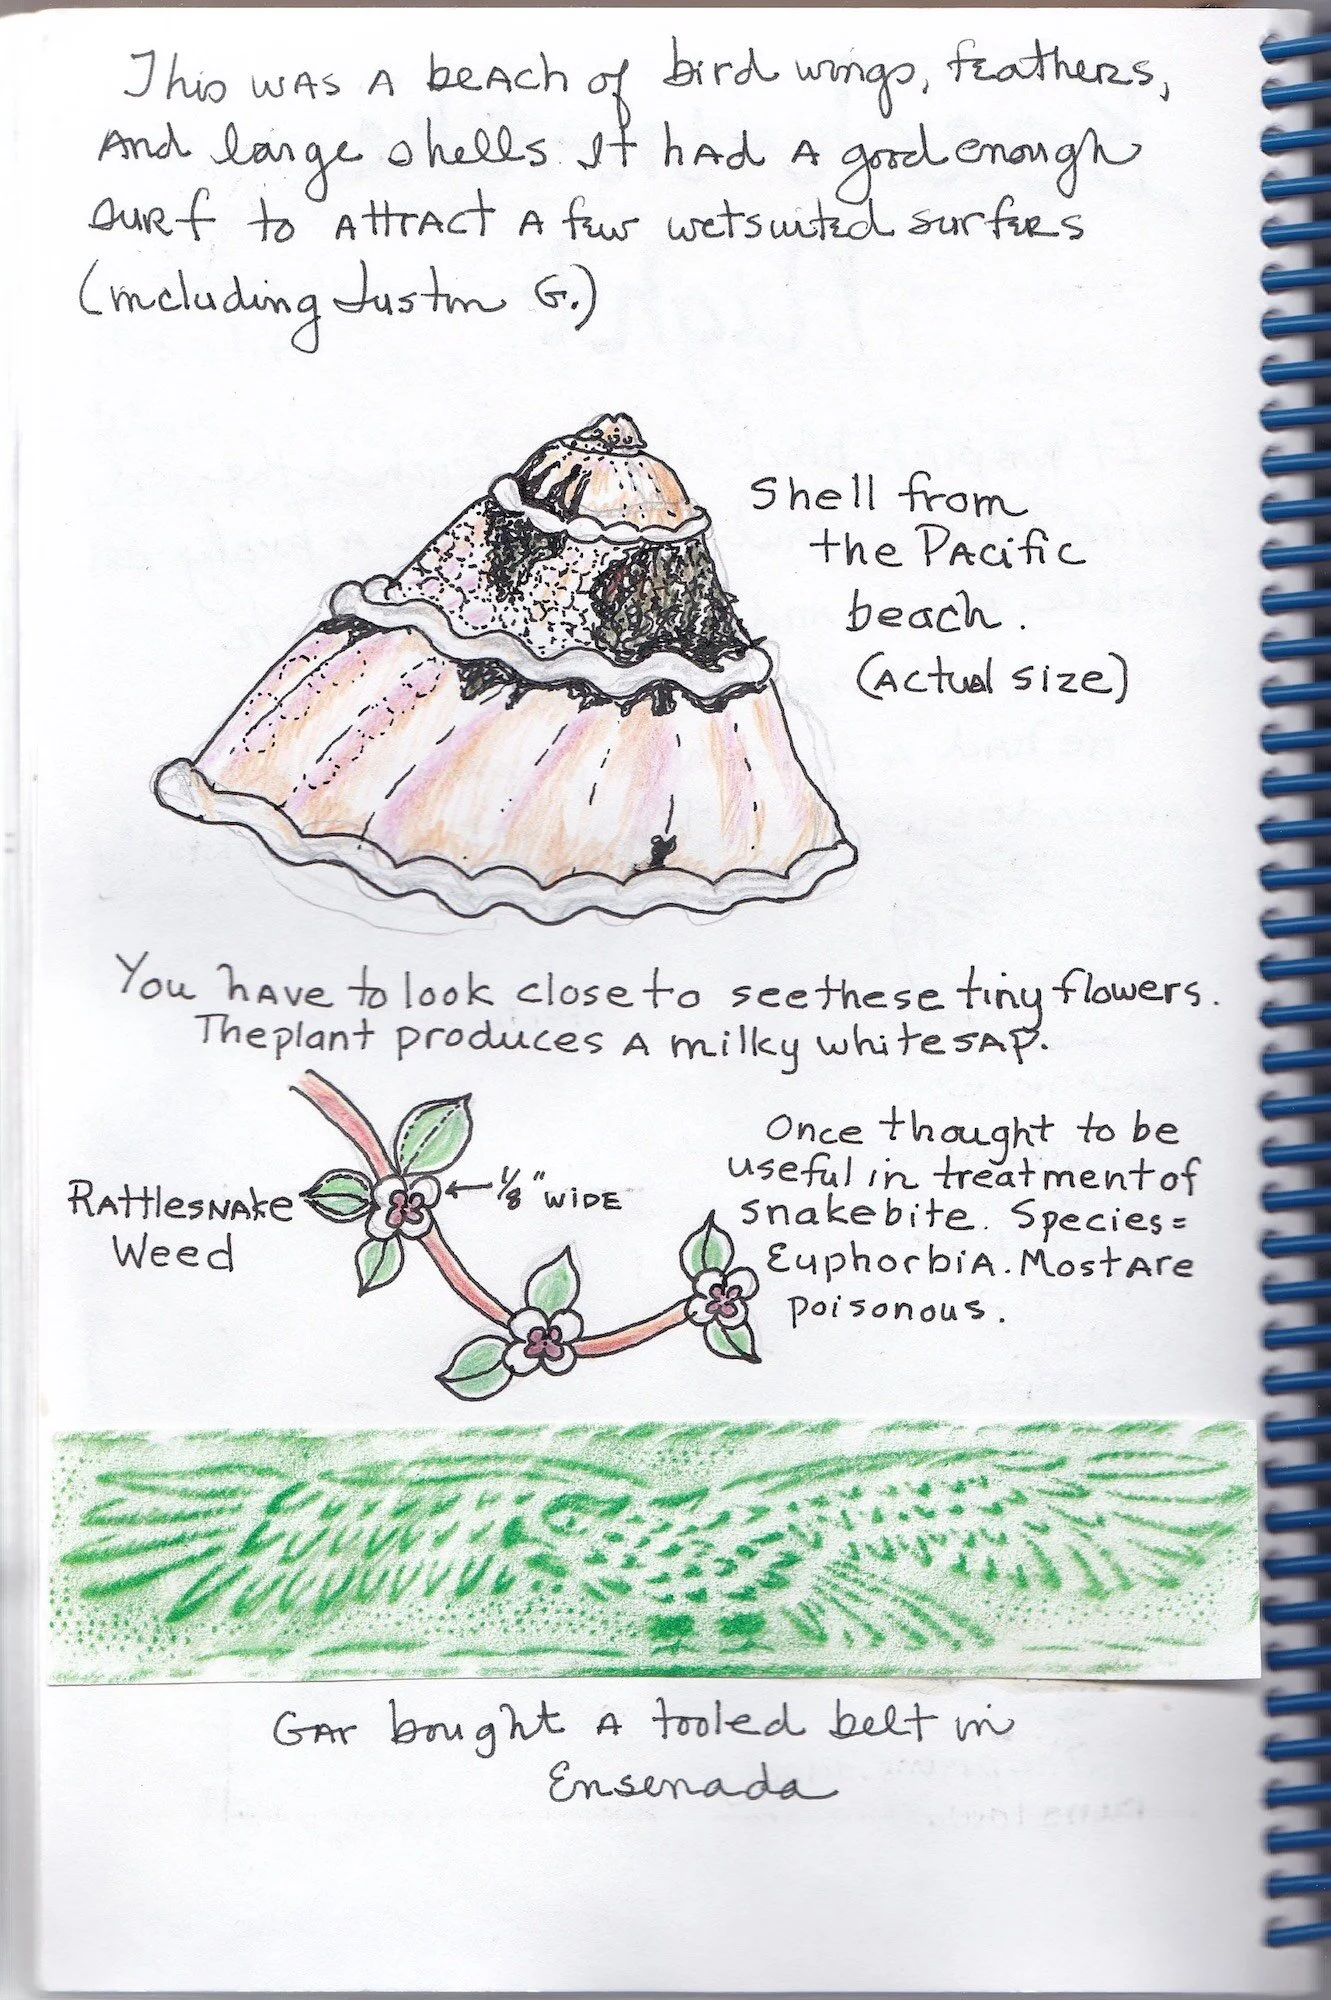 This was a beach of bird wings, feathers,
and large shells. It had a good enough
surf to attract a few wetsuited surfers
(including Justin G.)
Shell from
the Pacific
beach.
(Actual size)
You have to look close to see these tiny flowers.
The plant produces a milky white sap.
Rattlesnake
Weed
1/8" wide
Once thought to be
useful in treatment of
snakebite. Species=
Euphorbia. Most are
poisonous.
Gar bought a tooled belt in
Ensenada